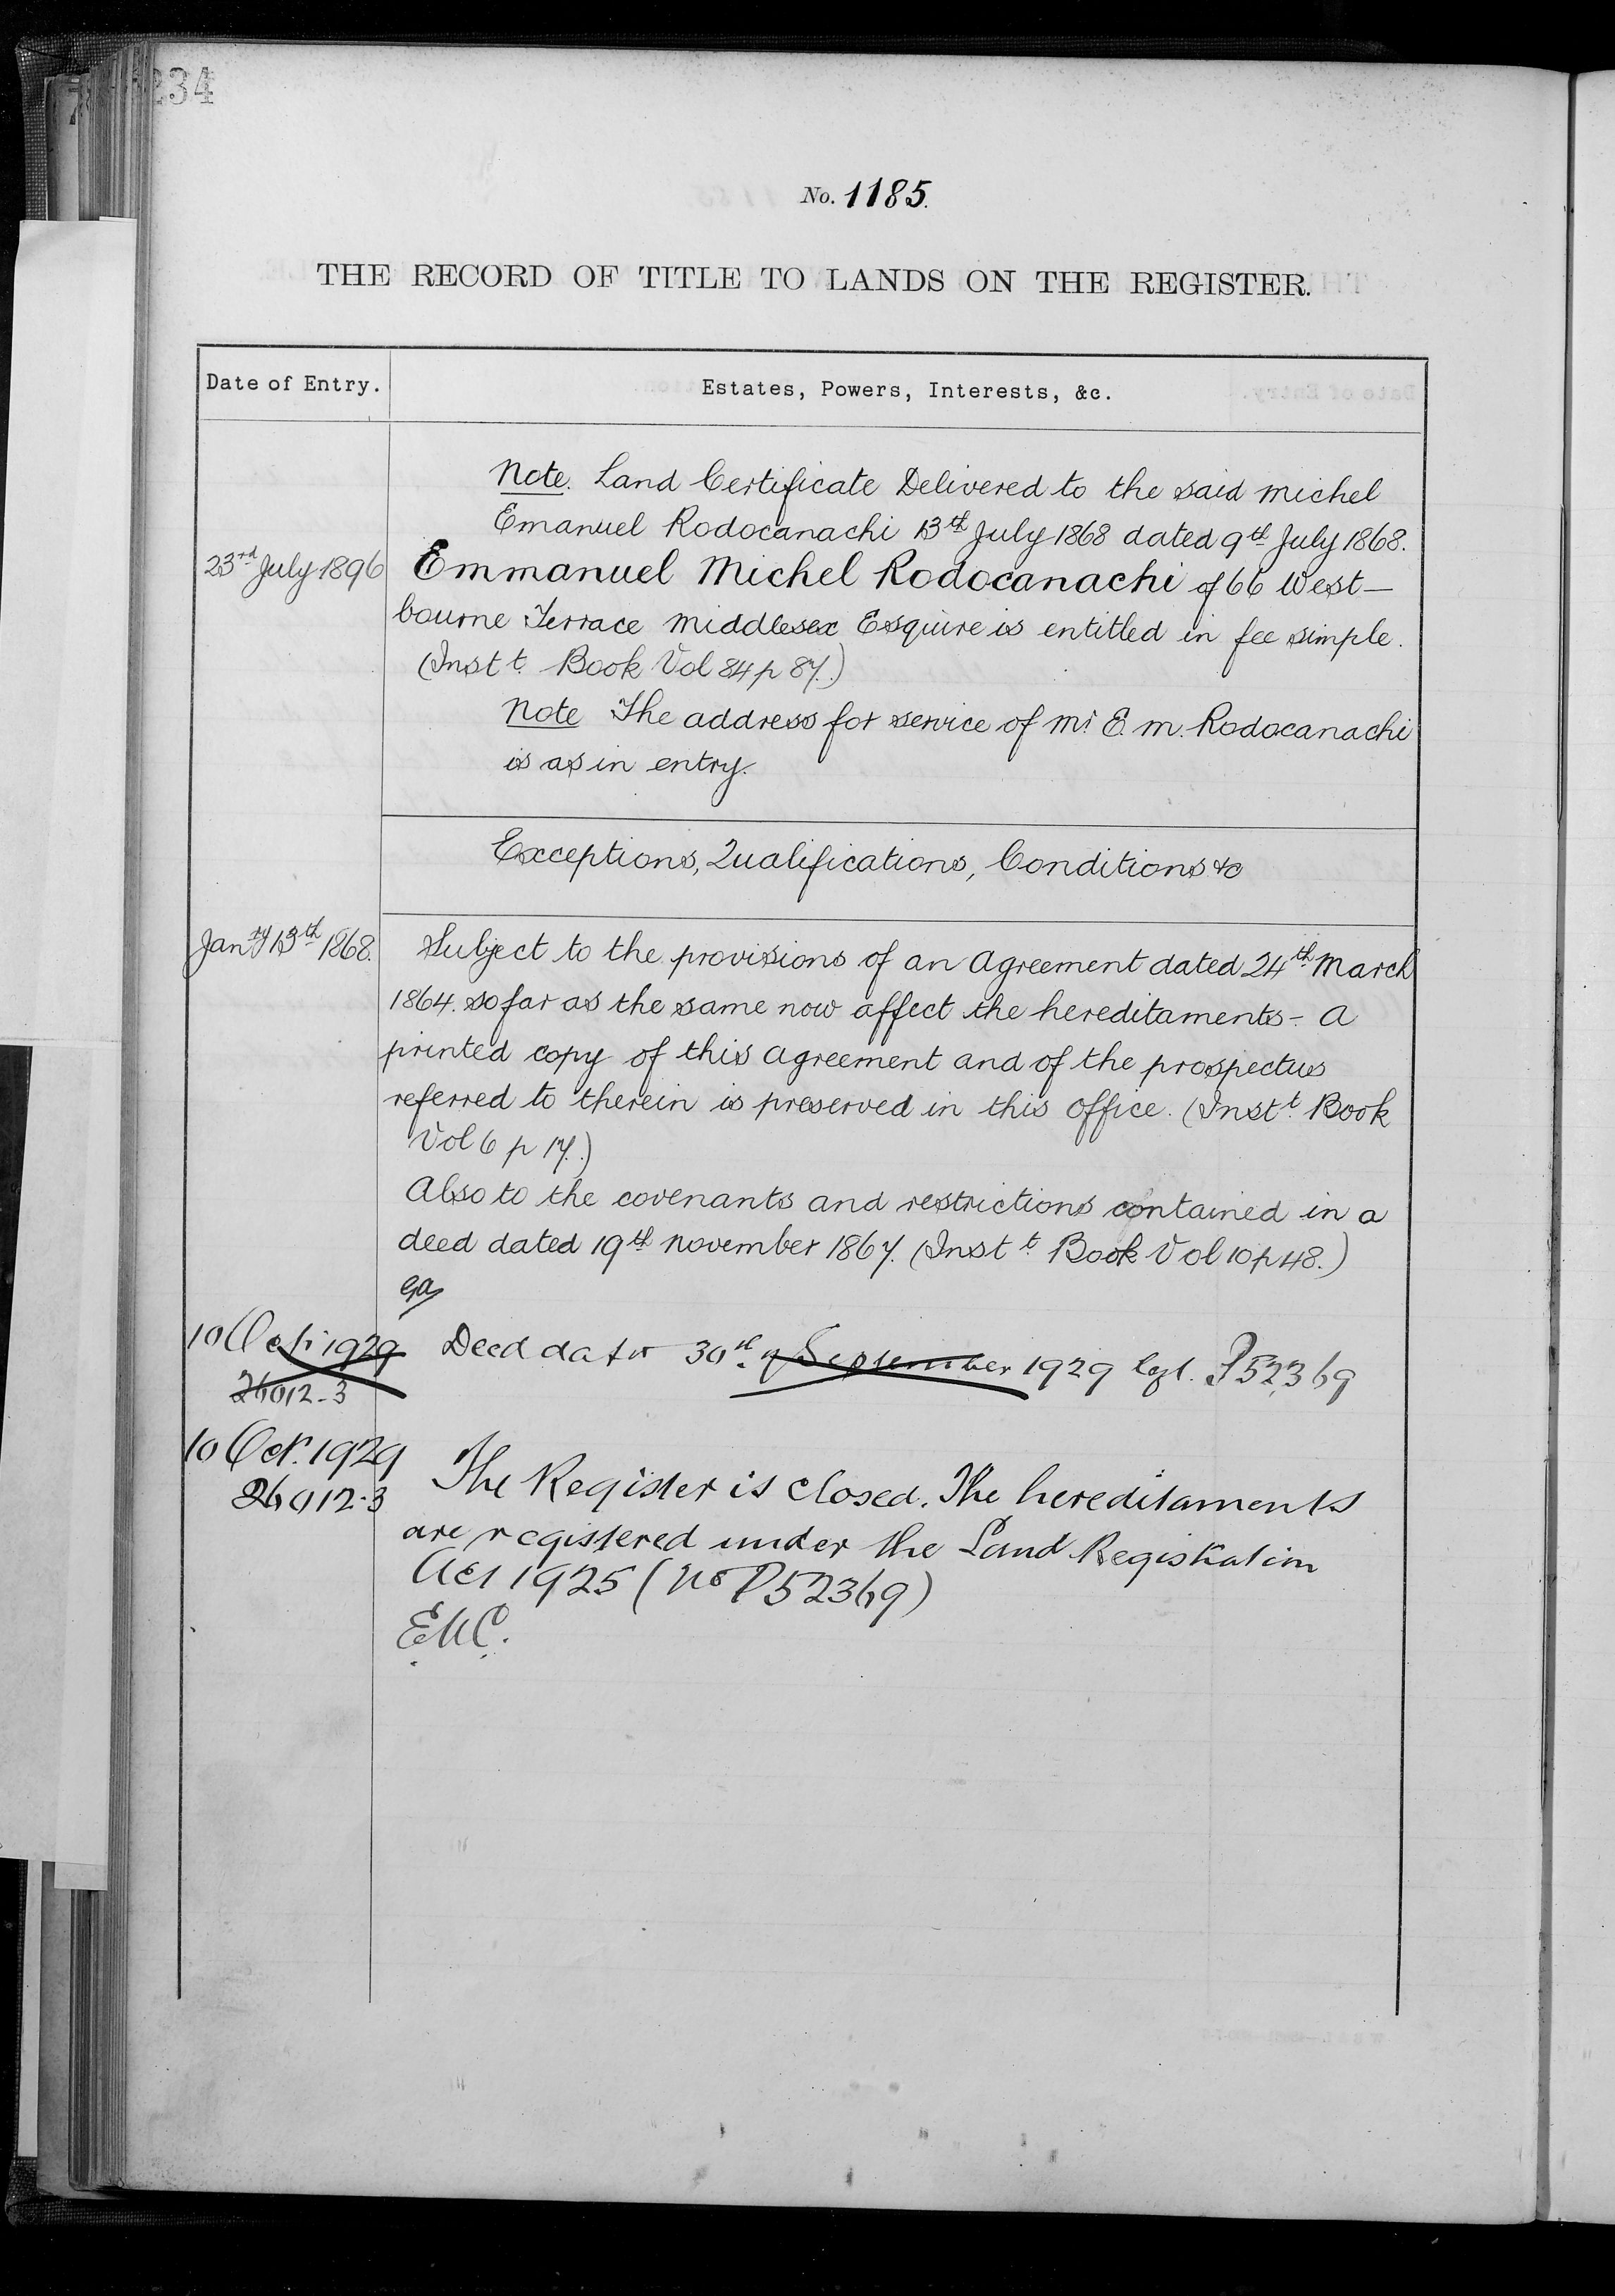 234
No. 1185.
THE RECORD OF TITLE TO LANDS ON THE REGISTER.
Date of Entry.
Estates, Powers, Interests, &c.
Note. Land Certificate Delivered to the said Michel
Emanuel Rodocanachi 13th July 1868 dated 9th July 1868.
23rd July 1896 Emmanuel Michel Rodocanachi of 66 West-
bourne Terrace Middlesex Esquire is entitled in fee simple.
(Instt. Book Vol 84 p 87.)
Note The address for service of Mr E. M. Rodocanachi
is as in entry.
Exceptions, Qualifications, Conditions &c
Janry 13th 1868. Subject to the provisions of an Agreement dated 24th March
1864. so far as the same now affect the hereditaments - A
printed copy of this Agreement and of the prospectus
referred to therein is preserved in this office. (Instt. Book
Vol 6 p 17.)
Also to the covenants and restrictions contained in a
deed dated 19th November 1867. (Instt. Book Vol 10 p 48.)
10 Oct. 1929 Deed dated 30th of September 1929 P52369
26012-3
10 Oct. 1929
26012-3 The Register is closed. The hereditaments
are registered under the Land Registration
Act 1925 (No P52369)